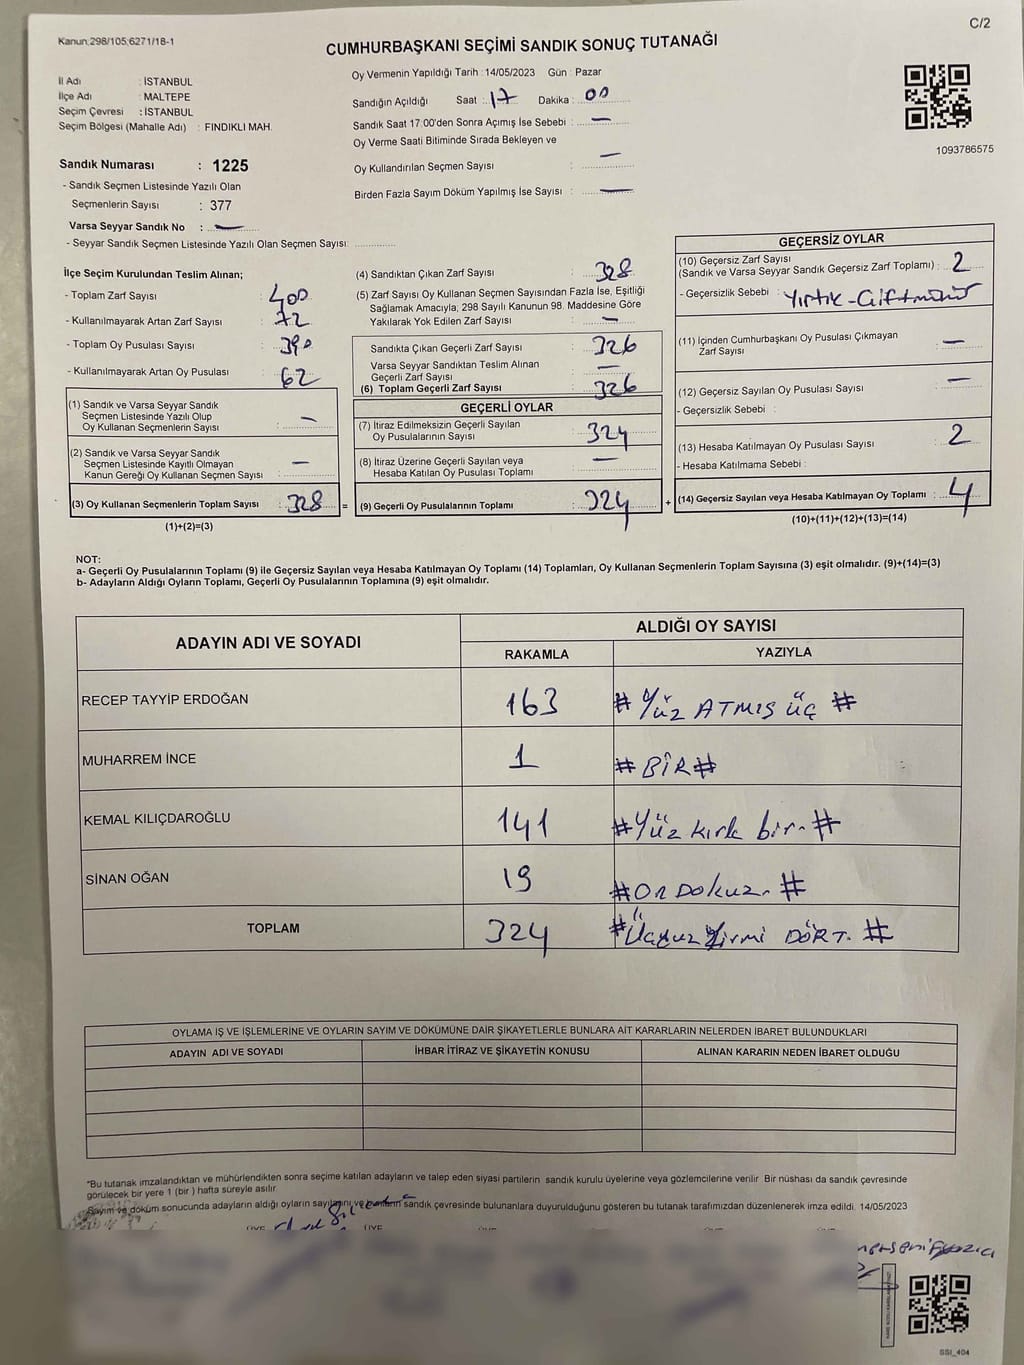 C/2
Kanun:298/105;6271/18-1
CUMHURBAŞKANI SEÇİMİ SANDIK SONUÇ TUTANAĞI
İl Adı : İSTANBUL
İlçe Adı : MALTEPE
Seçim Çevresi : İSTANBUL
Seçim Bölgesi (Mahalle Adı) : FINDIKLI MAH.
Oy Vermenin Yapıldığı Tarih : 14/05/2023 Gün : Pazar
Sandığın Açıldığı Saat : 17 Dakika : 00
Sandık Saat 17:00'den Sonra Açımış İse Sebebi : —
Oy Verme Saati Bitiminde Sırada Bekleyen ve
Oy Kullandırılan Seçmen Sayısı : —
Birden Fazla Sayım Döküm Yapılmış İse Sayısı : —
1093786575
Sandık Numarası : 1225
- Sandık Seçmen Listesinde Yazılı Olan
Seçmenlerin Sayısı : 377
Varsa Seyyar Sandık No : —
- Seyyar Sandık Seçmen Listesinde Yazılı Olan Seçmen Sayısı:
İlçe Seçim Kurulundan Teslim Alınan;
- Toplam Zarf Sayısı : 400
- Kullanılmayarak Artan Zarf Sayısı : 72
- Toplam Oy Pusulası Sayısı : 390
- Kullanılmayarak Artan Oy Pusulası : 62
(1) Sandık ve Varsa Seyyar Sandık
Seçmen Listesinde Yazılı Olup
Oy Kullanan Seçmenlerin Sayısı : —
(2) Sandık ve Varsa Seyyar Sandık
Seçmen Listesinde Kayıtlı Olmayan
Kanun Gereği Oy Kullanan Seçmen Sayısı : —
(3) Oy Kullanan Seçmenlerin Toplam Sayısı : 328 =
(1)+(2)=(3)
(4) Sandıktan Çıkan Zarf Sayısı : 328
(5) Zarf Sayısı Oy Kullanan Seçmen Sayısından Fazla İse, Eşitliği
Sağlamak Amacıyla; 298 Sayılı Kanunun 98. Maddesine Göre
Yakılarak Yok Edilen Zarf Sayısı : —
Sandıkta Çıkan Geçerli Zarf Sayısı : 326
Varsa Seyyar Sandıktan Teslim Alınan
Geçerli Zarf Sayısı : —
(6) Toplam Geçerli Zarf Sayısı : 326
GEÇERLİ OYLAR
(7) İtiraz Edilmeksizin Geçerli Sayılan
Oy Pusulalarının Sayısı : 324
(8) İtiraz Üzerine Geçerli Sayılan veya
Hesaba Katılan Oy Pusulası Toplamı : —
(9) Geçerli Oy Pusulalarının Toplamı : 324 +
GEÇERSİZ OYLAR
(10) Geçersiz Zarf Sayısı
(Sandık ve Varsa Seyyar Sandık Geçersiz Zarf Toplamı) : 2
- Geçersizlik Sebebi : Yırtık - Çiftmühür
(11) İçinden Cumhurbaşkanı Oy Pusulası Çıkmayan
Zarf Sayısı : —
(12) Geçersiz Sayılan Oy Pusulası Sayısı : —
- Geçersizlik Sebebi :
(13) Hesaba Katılmayan Oy Pusulası Sayısı : 2
- Hesaba Katılmama Sebebi :
(14) Geçersiz Sayılan veya Hesaba Katılmayan Oy Toplamı : 4
(10)+(11)+(12)+(13)=(14)
NOT:
a- Geçerli Oy Pusulalarının Toplamı (9) ile Geçersiz Sayılan veya Hesaba Katılmayan Oy Toplamı (14) Toplamları, Oy Kullanan Seçmenlerin Toplam Sayısına (3) eşit olmalıdır. (9)+(14)=(3)
b- Adayların Aldığı Oyların Toplamı, Geçerli Oy Pusulalarının Toplamına (9) eşit olmalıdır.
ADAYIN ADI VE SOYADI ALDIĞI OY SAYISI
RAKAMLA YAZIYLA
RECEP TAYYİP ERDOĞAN 163 # Yüz ATMIŞ üç #
MUHARREM İNCE 1 # BİR #
KEMAL KILIÇDAROĞLU 141 # Yüz kırk bir. #
SİNAN OĞAN 19 # On Dokuz. #
TOPLAM 324 # Üçyüz Yirmi DÖRT. #
OYLAMA İŞ VE İŞLEMLERİNE VE OYLARIN SAYIM VE DÖKÜMÜNE DAİR ŞİKAYETLERLE BUNLARA AİT KARARLARIN NELERDEN İBARET BULUNDUKLARI
ADAYIN ADI VE SOYADI İHBAR İTİRAZ VE ŞİKAYETİN KONUSU ALINAN KARARIN NEDEN İBARET OLDUĞU
"Bu tutanak imzalandıktan ve mühürlendikten sonra seçime katılan adayların ve talep eden siyasi partilerin sandık kurulu üyelerine veya gözlemcilerine verilir Bir nüshası da sandık çevresinde
görülecek bir yere 1 (bir) hafta süreyle asılır.
Sayım ve döküm sonucunda adayların aldığı oyların sayılarını ve sandık çevresinde bulunanlara duyurulduğunu gösteren bu tutanak tarafımızdan düzenlenerek imza edildi. 14/05/2023
SSI_404